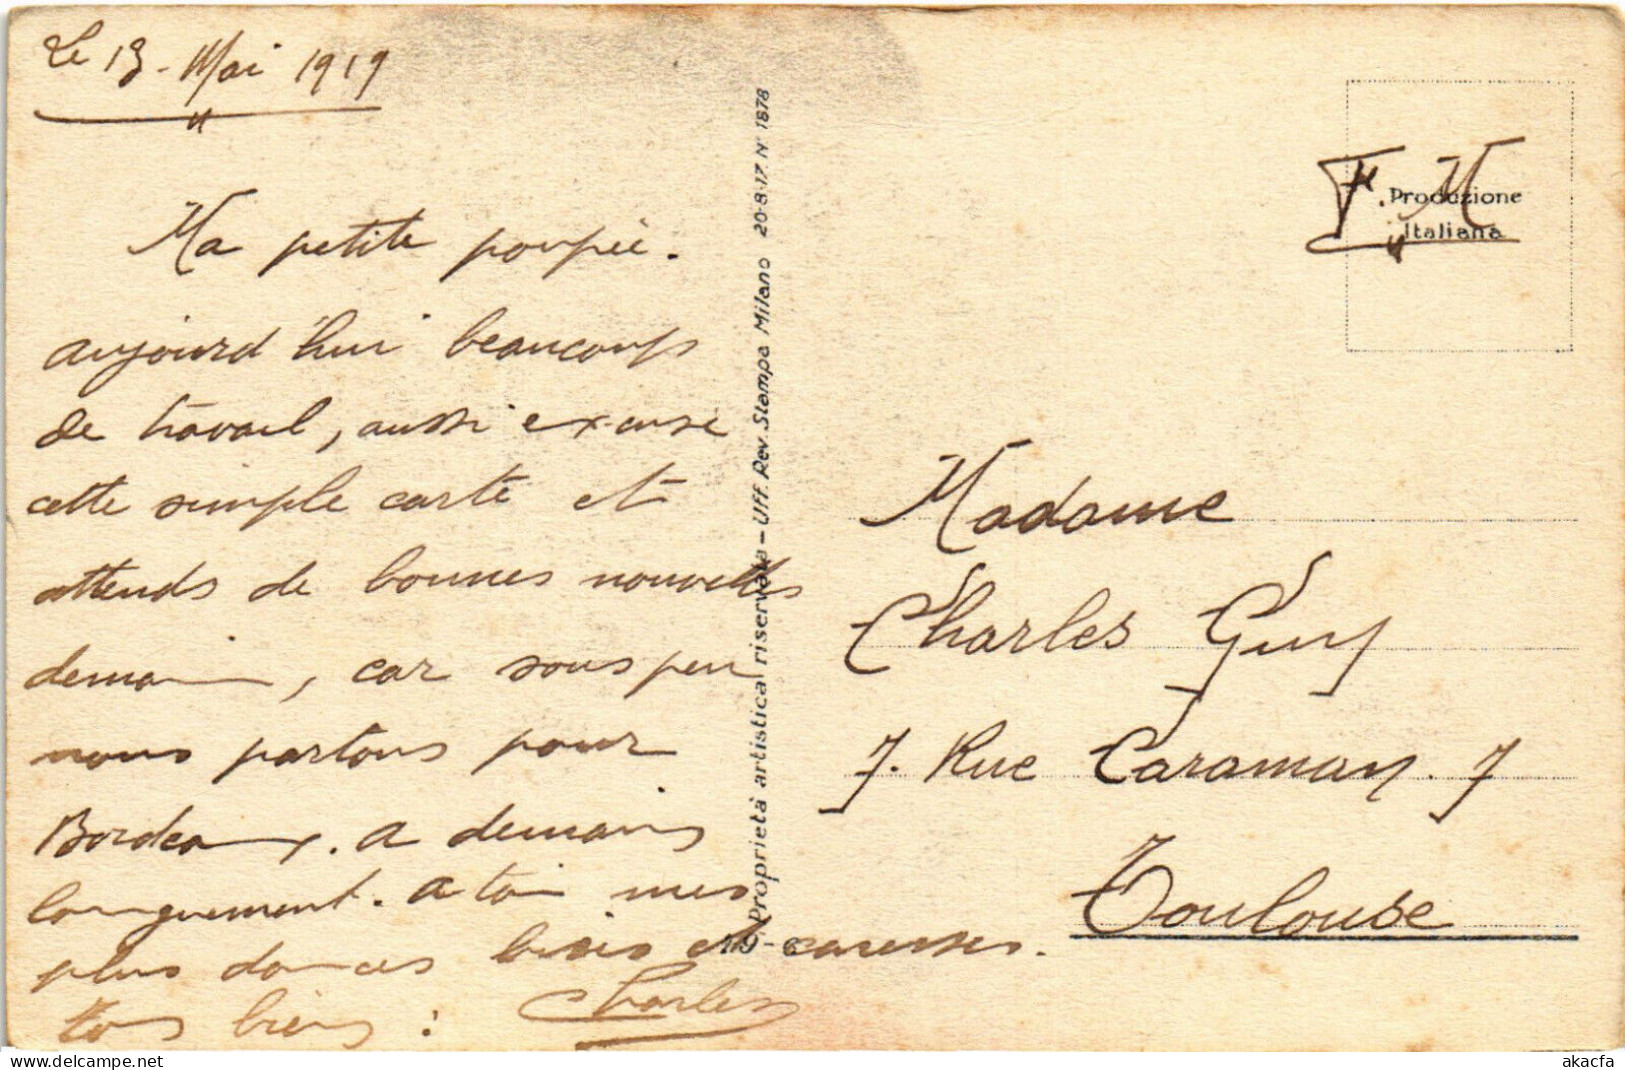 Le 13 - Mai 1919
Ma petite poupée.
aujourd'hui beaucoup
de travail, aussi excuse
cette simple carte et
attends de bonnes nouvelles
demain, car sous peu
nous partons pour
Bordeaux. a demain
longuement. a toi mes
plus douces bises et caresses.
ton bien :
Charles
Proprietà artistica riservata - Uff. Rev. Stampa Milano 20-8-17. N° 1878
119-6
F. M
Produzione
Italiana
Madame
Charles Guy
7. Rue Caraman. 7
Toulouse
akacfa